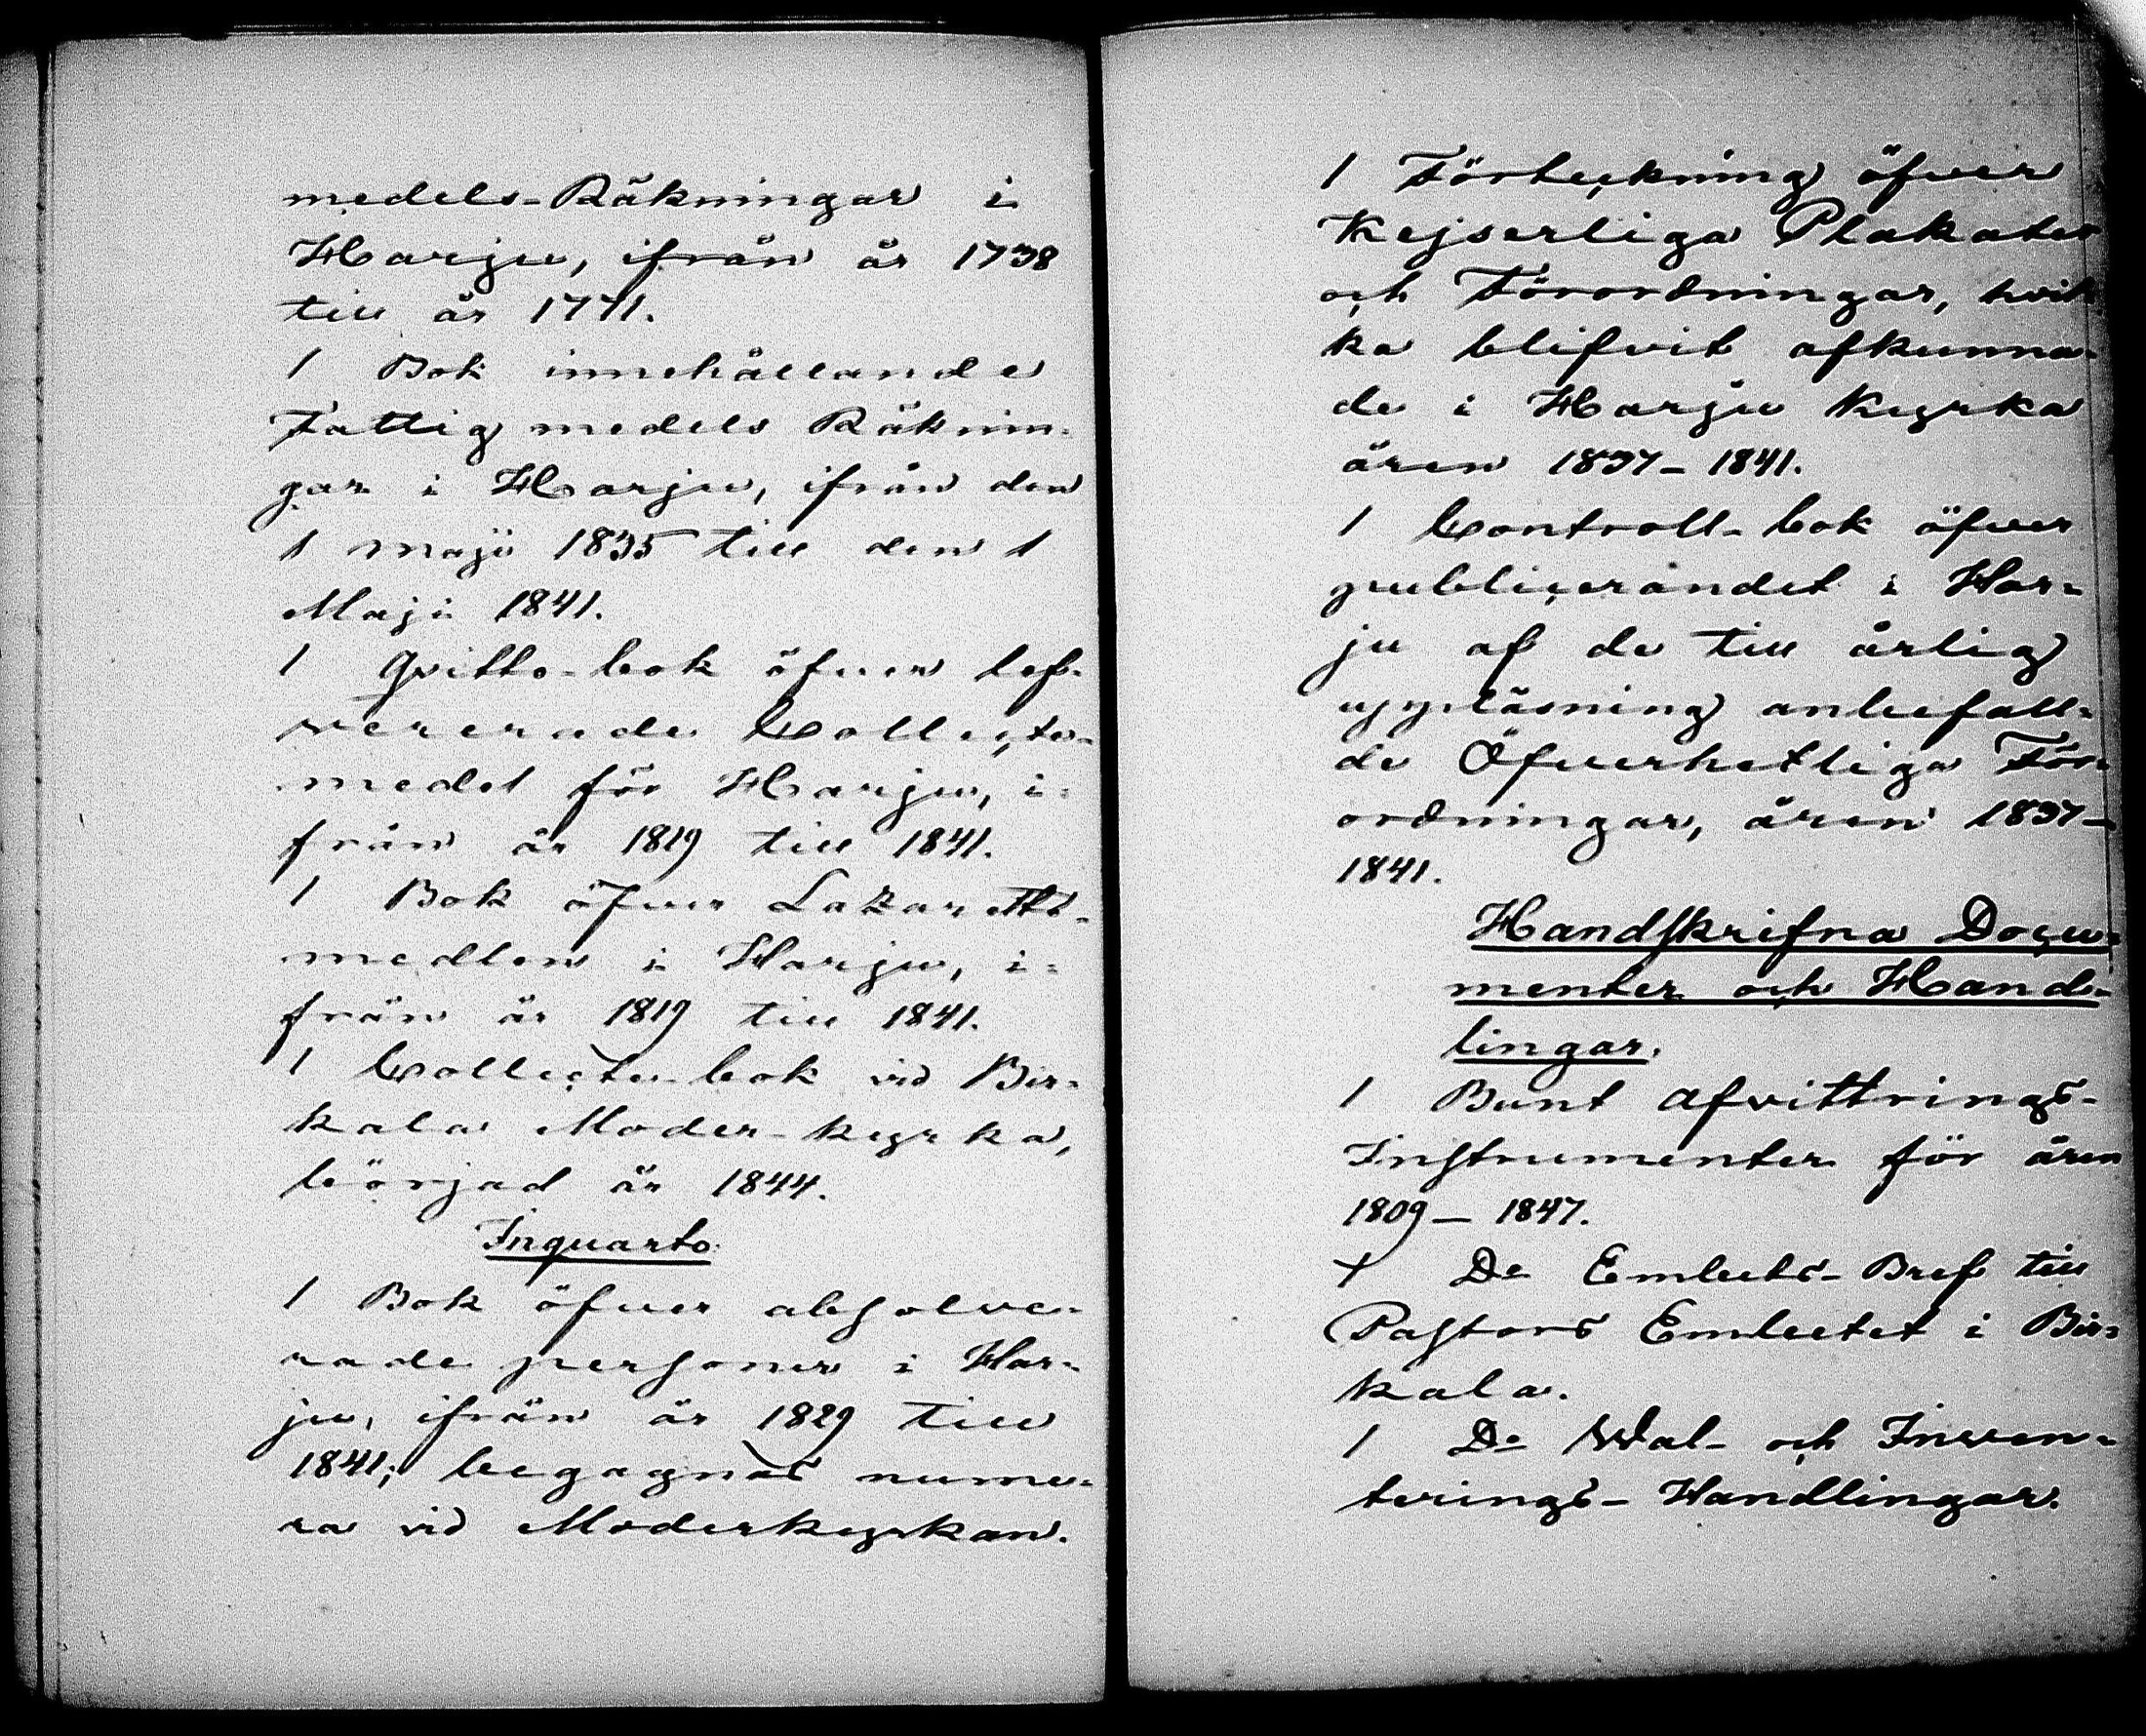 medels-Räkningar i
Harju, ifrån år 1738
till år 1771.
1 Bok innehållande
Fattig medels Räknin-
gar i Harju, ifrån den
1 maji 1835 till den 1
Maji 1841.
1 Qvitto-bok öfver lef-
vererade Collecte-
medel för Harju, i-
från år 1819 till 1841.
1 Bok öfver Lazaretts-
medlen i Harju, i-
från år 1819 till 1841.
1 Collecte-bok vid Bir-
kala Moder-kyrka,
börjad år 1844.
Inquarto.
1 Bok öfver absolve-
rade personer i Har-
ju, ifrån år 1829 till
1841; begagnas nume-
ra vid Moderkyrkan.
1 Förteckning öfver
Kejserliga Plakater
och Förordningar, hvil
ka blifvit afkunna-
de i Harju Kyrka
åren 1837-1841.
1 Controll-bok öfver
publicerandet i Har-
ju af de till årlig
uppläsning anbefall-
de Öfverhetliga För-
ordningar, åren 1837-
1841.
Handskrifna Docu-
menter och Hand-
lingar.
1 Bunt Afvittrings-
Instrumenter för åren
1809-1847.
+ Do Embets-Bref till
Pastors Embetet i Bir-
kala.
1 Do Wal- och Inven-
terings-Handlingar.